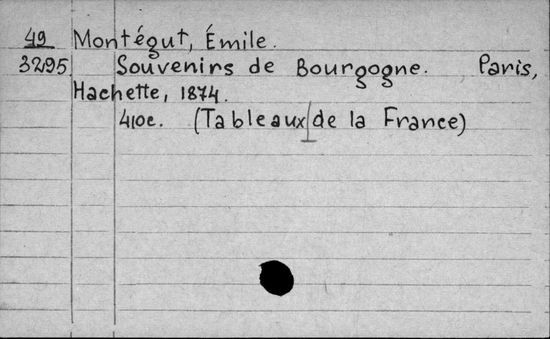 49 Montégut, Émile.
3295 Souvenirs de Bourgogne. Paris,
Hachette, 1874.
410c. (Tableaux de la France)